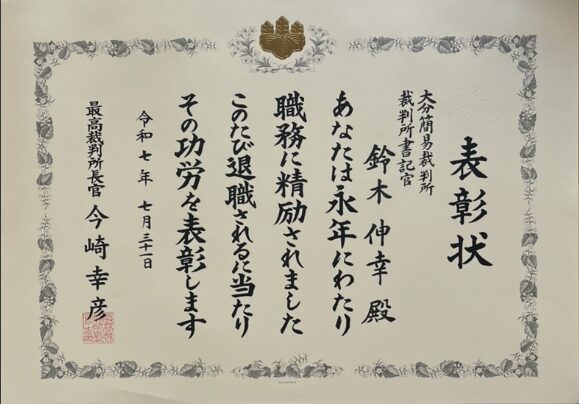 表彰状
大分簡易裁判所
裁判所書記官
鈴木伸幸殿
あなたは永年にわたり
職務に精励されました
このたび退職されるに当たり
その功労を表彰します
令和七年七月三十一日
最高裁判所長官 今崎幸彦